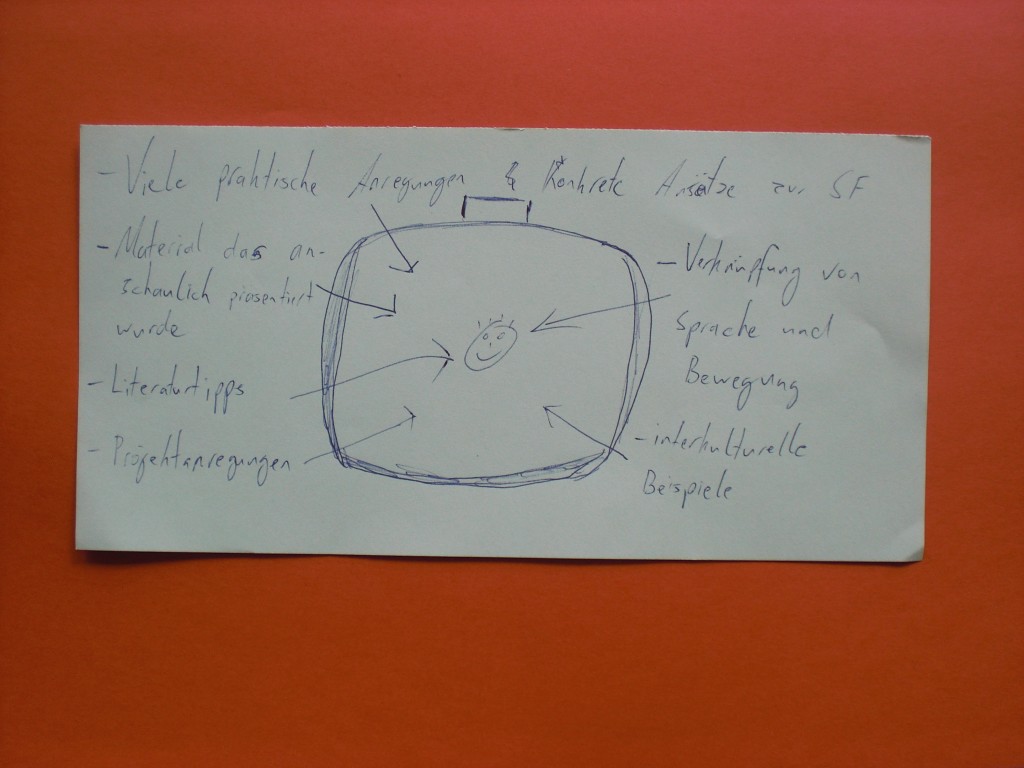 - Viele praktische Anregungen & Konkrete Ansätze zur SF
- Material das an-
schaulich präsentiert
wurde
- Literaturtipps
- Projektanregungen
- Verknüpfung von
Sprache und
Bewegung
- interkulturelle
Beispiele